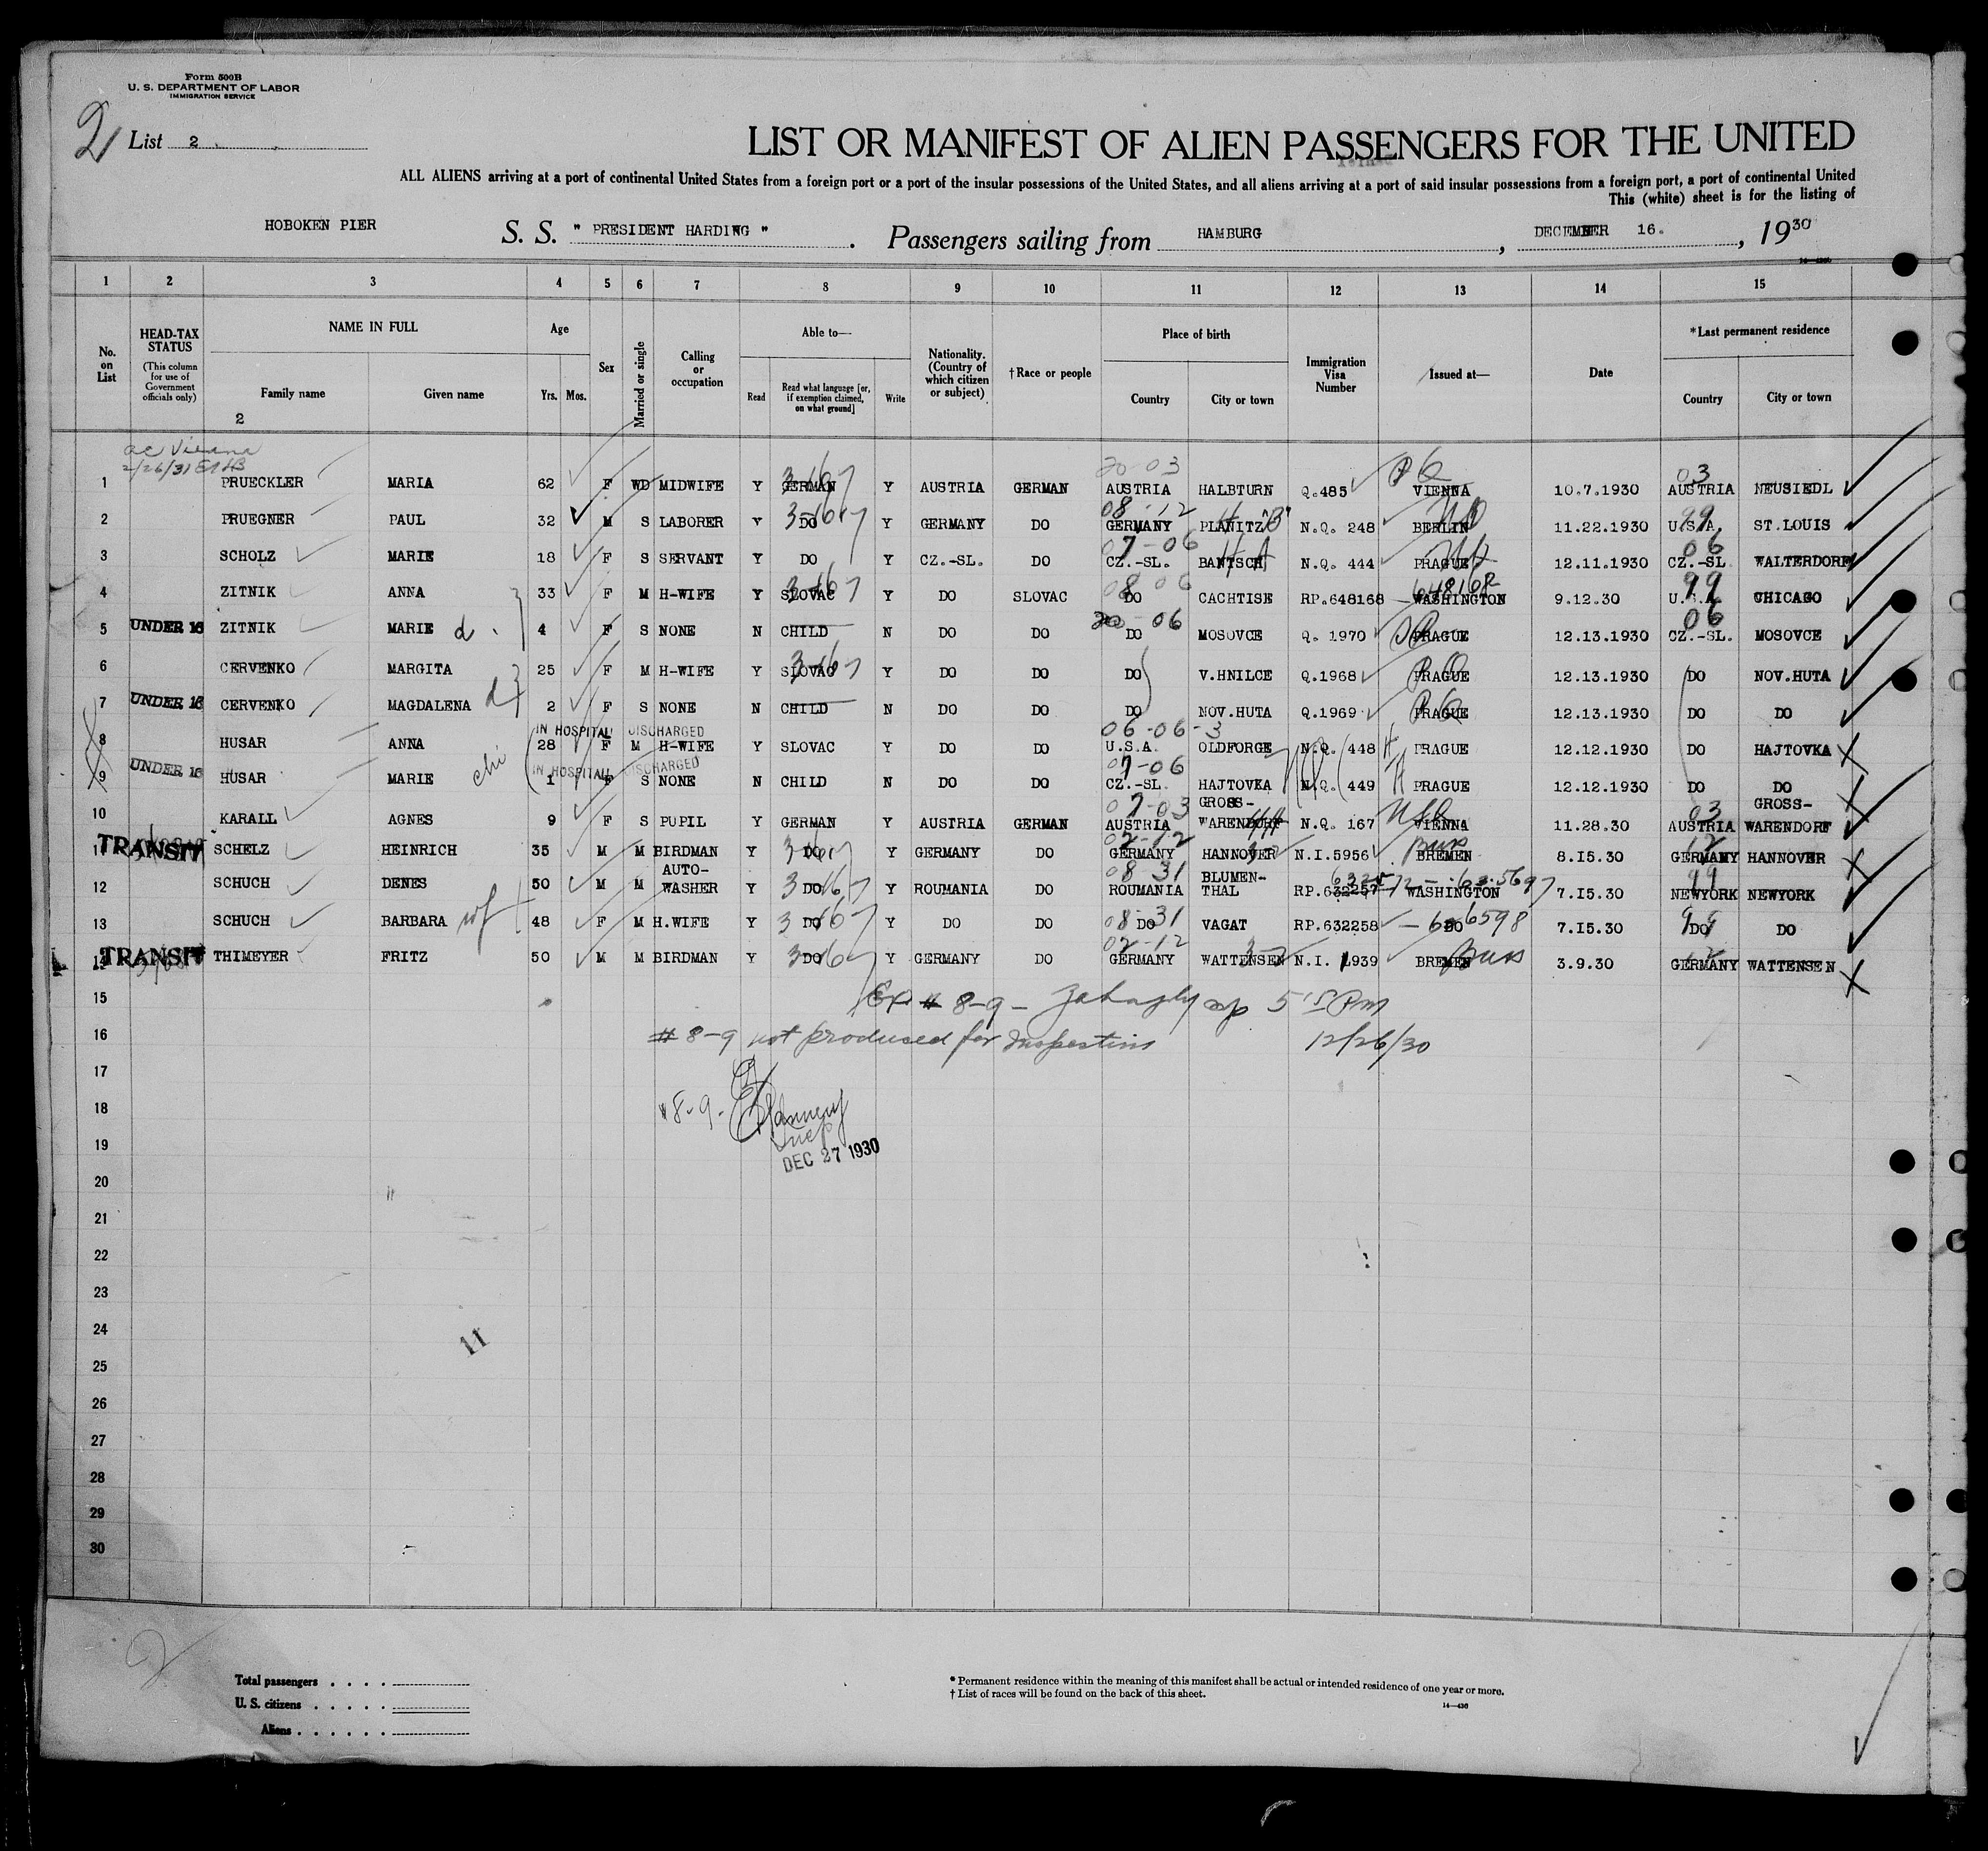 Form 500B
U. S. DEPARTMENT OF LABOR
IMMIGRATION SERVICE
2
List 2
LIST OR MANIFEST OF ALIEN PASSENGERS FOR THE UNITED
ALL ALIENS arriving at a port of continental United States from a foreign port or a port of the insular possessions of the United States, and all aliens arriving at a port of said insular possessions from a foreign port, a port of continental United
This (white) sheet is for the listing of
HOBOKEN PIER S. S. " PRESIDENT HARDING " . Passengers sailing from HAMBURG , DECEMBER 16. , 1930
1 2 3 4 5 6 7 8 9 10 11 12 13 14 15
No. on List HEAD-TAX STATUS (This column for use of Government officials only) NAME IN FULL Family name Given name Age Yrs. Mos. Sex Married or single Calling or occupation Able to— Read Read what language [or, if exemption claimed, on what ground] Write Nationality. (Country of which citizen or subject) †Race or people Place of birth Country City or town Immigration Visa Number Issued at— Date *Last permanent residence Country City or town
2
ac Vienna
2/26/31
20-03 03
1 PRUECKLER MARIA 62 F WD MIDWIFE Y GERMAN Y AUSTRIA GERMAN AUSTRIA HALBTURN Q.485 VIENNA 10.7.1930 AUSTRIA NEUSIEDL
08-12 99
2 PRUEGNER PAUL 32 M S LABORER Y DO Y GERMANY DO GERMANY PLANITZ "B" N.Q. 248 BERLIN 11.22.1930 U.S.A. ST.LOUIS
07-06 06
3 SCHOLZ MARIE 18 F S SERVANT Y DO Y CZ.-SL. DO CZ.-SL. BANTSCH N.Q. 444 PRAGUE 12.11.1930 CZ.-SL WALTERDORF
08 06 648168 99
4 ZITNIK ANNA 33 F M H-WIFE Y SLOVAC Y DO SLOVAC DO CACHTISE RP.648168 WASHINGTON 9.12.30 U.S.A. CHICAGO
20-06 06
5 UNDER 16 ZITNIK MARIE d. 4 F S NONE N CHILD N DO DO DO MOSOVCE Q. 1970 PRAGUE 12.13.1930 CZ.-SL. MOSOVCE
6 CERVENKO MARGITA 25 F M H-WIFE Y SLOVAC Y DO DO DO V.HNILCE Q.1968 PRAGUE 12.13.1930 DO NOV.HUTA
7 UNDER 16 CERVENKO MAGDALENA d 2 F S NONE N CHILD N DO DO DO NOV.HUTA Q.1969 PRAGUE 12.13.1930 DO DO
IN HOSPITAL DISCHARGED 06-06-3
8 HUSAR ANNA 28 F M H-WIFE Y SLOVAC Y DO DO U.S.A. OLDFORGE N.Q. 448 PRAGUE 12.12.1930 DO HAJTOVKA
IN HOSPITAL DISCHARGED 07-06
9 UNDER 16 HUSAR MARIE chi 1 F S NONE N CHILD N DO DO CZ.-SL. HAJTOVKA N.Q. 449 PRAGUE 12.12.1930 DO DO
07-03 GROSS- 03 GROSS-
10 KARALL AGNES 9 F S PUPIL Y GERMAN Y AUSTRIA GERMAN AUSTRIA WARENDORF N.Q. 167 VIENNA 11.28.30 AUSTRIA WARENDORF
02-12 12
11 TRANSIT SCHELZ HEINRICH 35 M M BIRDMAN Y DO Y GERMANY DO GERMANY HANNOVER N.I.5956 BREMEN 8.I5.30 GERMANY HANNOVER
AUTO- 08 31 BLUMEN- 99
12 SCHUCH DENES 50 M M WASHER Y DO Y ROUMANIA DO ROUMANIA THAL RP.632257 WASHINGTON 7.I5.30 NEWYORK NEWYORK
08-31 99
13 SCHUCH BARBARA wf 48 F M H.WIFE Y DO Y DO DO DO VAGAT RP.632258 DO 7.I5.30 DO DO
02-12 12
14 TRANSIT THIMEYER FRITZ 50 M M BIRDMAN Y DO Y GERMANY DO GERMANY WATTENSEN N.I. 1939 BREMEN 3.9.30 GERMANY WATTENSEN
15 # 8-9 - 5 15 Pm
16 # 8-9 not produced for Inspection 12/26/30
17
18 # 8-9-
19 Insp
DEC 27 1930
20
21
22
23
24
11
25
26
27
28
29
30
2
Total passengers
U. S. citizens
Aliens
* Permanent residence within the meaning of this manifest shall be actual or intended residence of one year or more.
† List of races will be found on the back of this sheet.
14—436